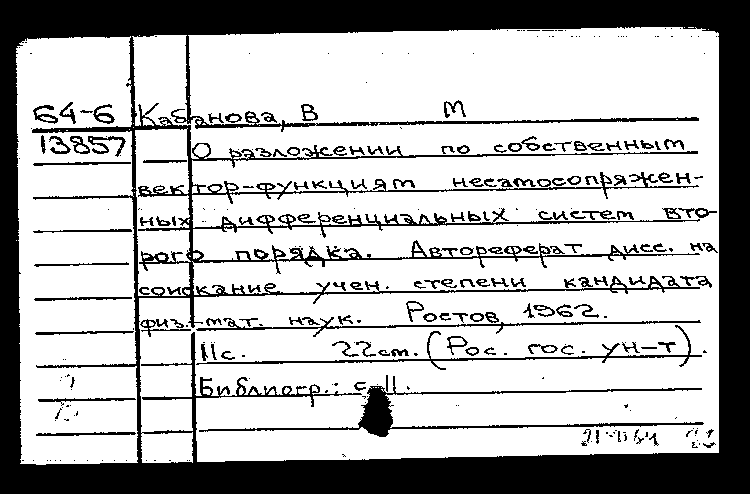 64-6 Кабанова, В М
13857 О разложении по собственным
вектор-функциям несамосопряжен-
ных дифференциальных систем вто-
рого порядка. Автореферат дисс. на
соискание учен. степени кандидата
физ.-мат. наук. Ростов, 1962.
11с. 22см. (Рос. гос. ун-т).
Библиогр.: с. 11.